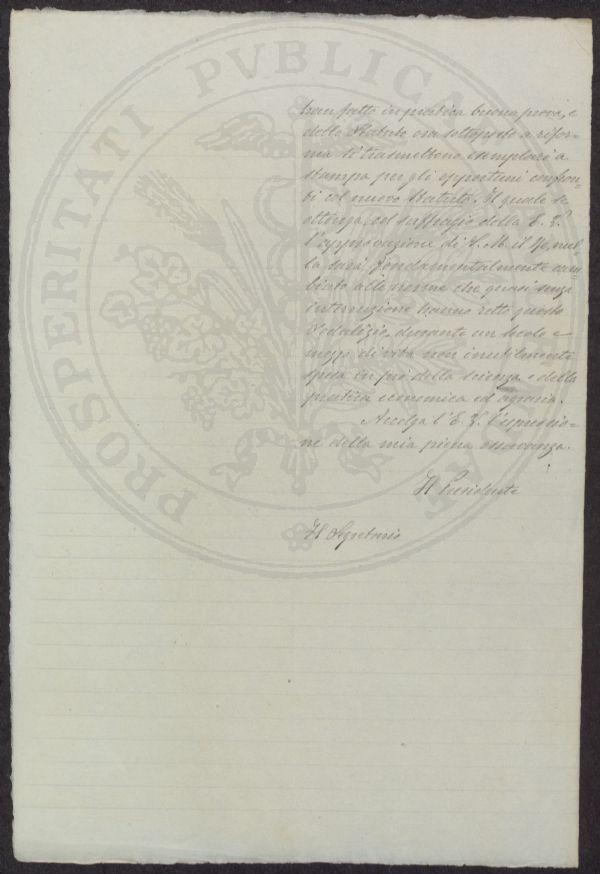 PROSPERITATI PVBLICAE
han fatto in pratica buona prova, e
dello Statuto ora sottoposto a rifor-
ma si trasmettono esemplari a
stampa per gli opportuni confron-
ti col nuovo Statuto. Il quale se
ottenga, col suffragio della E. V.
l'approvazione di S. M. il Re, nul-
la sarà fondamentalmente cam-
biato alle norme che quasi senza
interruzione hanno retto questo
Sodalizio, durante un secolo e
mezzo di vita non inutilmente
spesa in prò della scienza e della
pratica economica ed agraria.
Accolga l'E. V. l'espressio-
ne della mia piena osservanza.
Il Presidente
Il Segretario